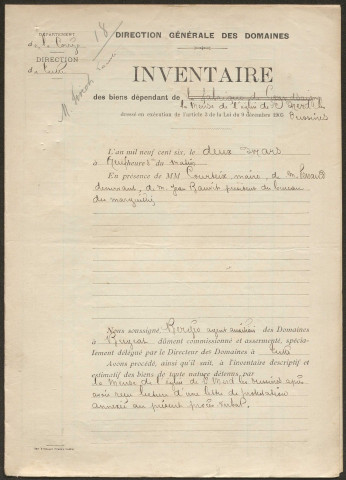 DÉPARTEMENT
de la Corrèze
DIRECTION
de Tulle
18
DIRECTION GÉNÉRALE DES DOMAINES
INVENTAIRE
des biens dépendant de
la Mense de l'église de St Merd les
Bussines
dressé en exécution de l'article 3 de la Loi du 9 décembre 1905
L'an mil neuf cent six, le deux Mars
à neuf heures du matin
En présence de MM Courteix, maire, de M.
desservant, de M. Jean président du bureau
des marguilliers,
Nous soussigné agent auxiliaire des Domaines
à Bugeat dûment commissionné et assermenté, spécia-
lement délégué par le Directeur des Domaines à Tulle
Avons procédé, ainsi qu'il suit, à l'inventaire descriptif et
estimatif des biens de toute nature détenus par
la Mense de l'église de St Merd les Bussines après
avoir reçu lecture d'une lettre de protestation
annexée au présent procès verbal.